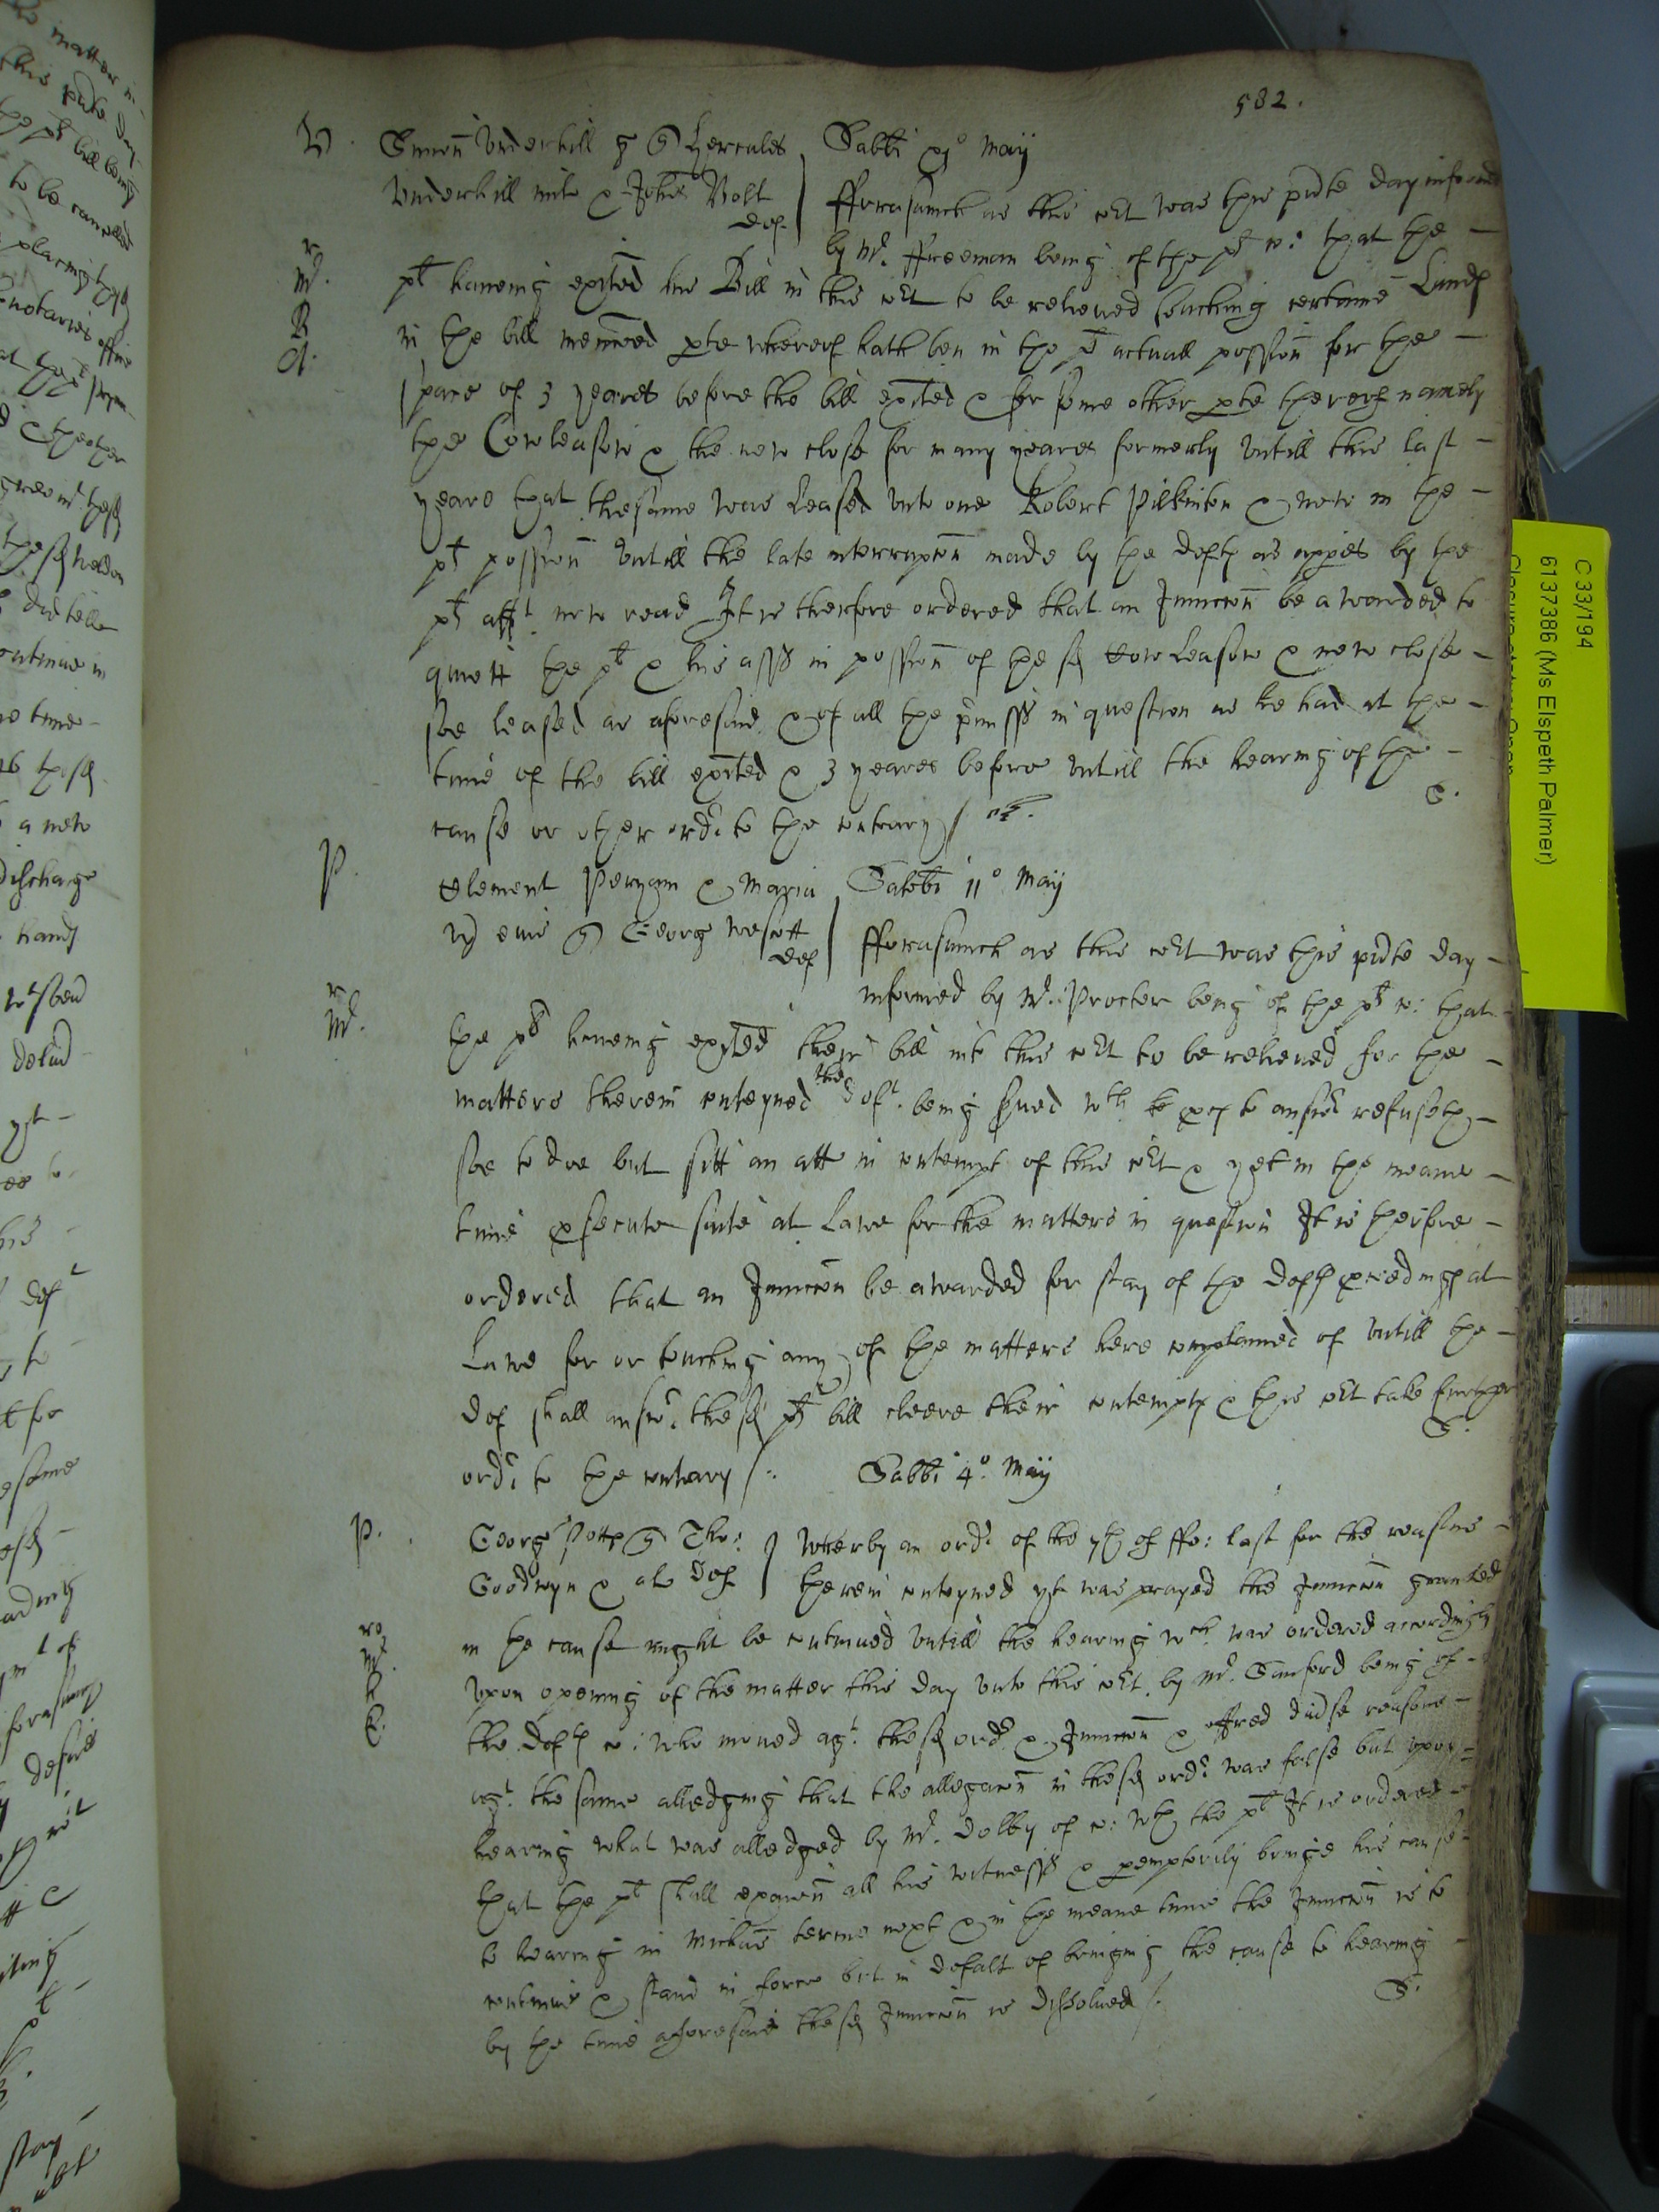 582.
V. Simon Vnderhill g q Hercules Sabbti xjo Maij
Vnderhill mil & Johes Bolt def
fforasmuch as this cort was this pnte day informed
by Mr. ffreeman being of the pt c: that the
pt haveing exited his Bill in this cort to be releived touching certaine Lands
in the bill menconed pte whereof hath ben in the pt actuall possion for the
space of 3 yeares before the bill exited & for some other pte thereof namely
the Cowleasow & the new close for many yeares formerly vntill this last
yeare that thesame was Leased vnto one Robert Pilkinton & now in the
pt possion vntill the late interrupcon made by the defts as appes by the
pt afft now read It is therfore ordered that an Iniuncon be awarded to
quiett the pt & his asss in possion of the sd Cow Leasow & new close
soe leased as aforesaid & of all the pmisss in question as he had at the
time of the bill exited & 3 yeares before vntill the hearing of the
cause or other ordr to the contrary /
P. Clement Peryam & Maria Sabbti 11o Maij
vx eius q Georg Wescott def
fforasmuch as this cort was this pnte day
informed by Mr. Procter being of the pt c: that
the pts haveing exyted their bill into this cort to be releived for the
matters therein conteyned the deft being served wth pces to answr refuseth
soe to doe but sitt an att in contempt of this cort & yet in the meane
time psecute suite at Lawe for the matters in question It is therfore
ordered that an Iniuncon be awarded for stay of the defts pceedings at
Lawe for or touching any of the matters here complained of vntill the
def shall answr the sd pts bill cleere their contempts & this cort take further
ordr to the contrary /. Sabbti 4o. Maij
P. Georg Potts q Tho:
Goodwyn & al def
Wherby an ordr of the of ffe: last for the reasons
therein conteyned yt was prayed the Iniuncon graunted
in the cause might be continued vntill the hearing wch was ordered accordingly
vpon opening of the matter this day vnto this cort by Mr. Sanford being of
the defts c: who moved agt the sd ordr & Iniuncon & offred divse reasons
agt. the same alledging that the allegacon in the sd ordr was false but vpon
hearing what was alledged by Mr. Dolby of c: wth the pt It is ordered
that the pt shall exa͞in all his witnesss & pemptorily bringe his cause
to hearing in Michas terme next & in the meane time the Iniuncon is to
continue & stand in force but in defalt of bringing the cause to hearing
by the time aforesaid the sd Iniuncon is dissolued /.
C 33/194
6137386 (Ms Elspeth Palmer)